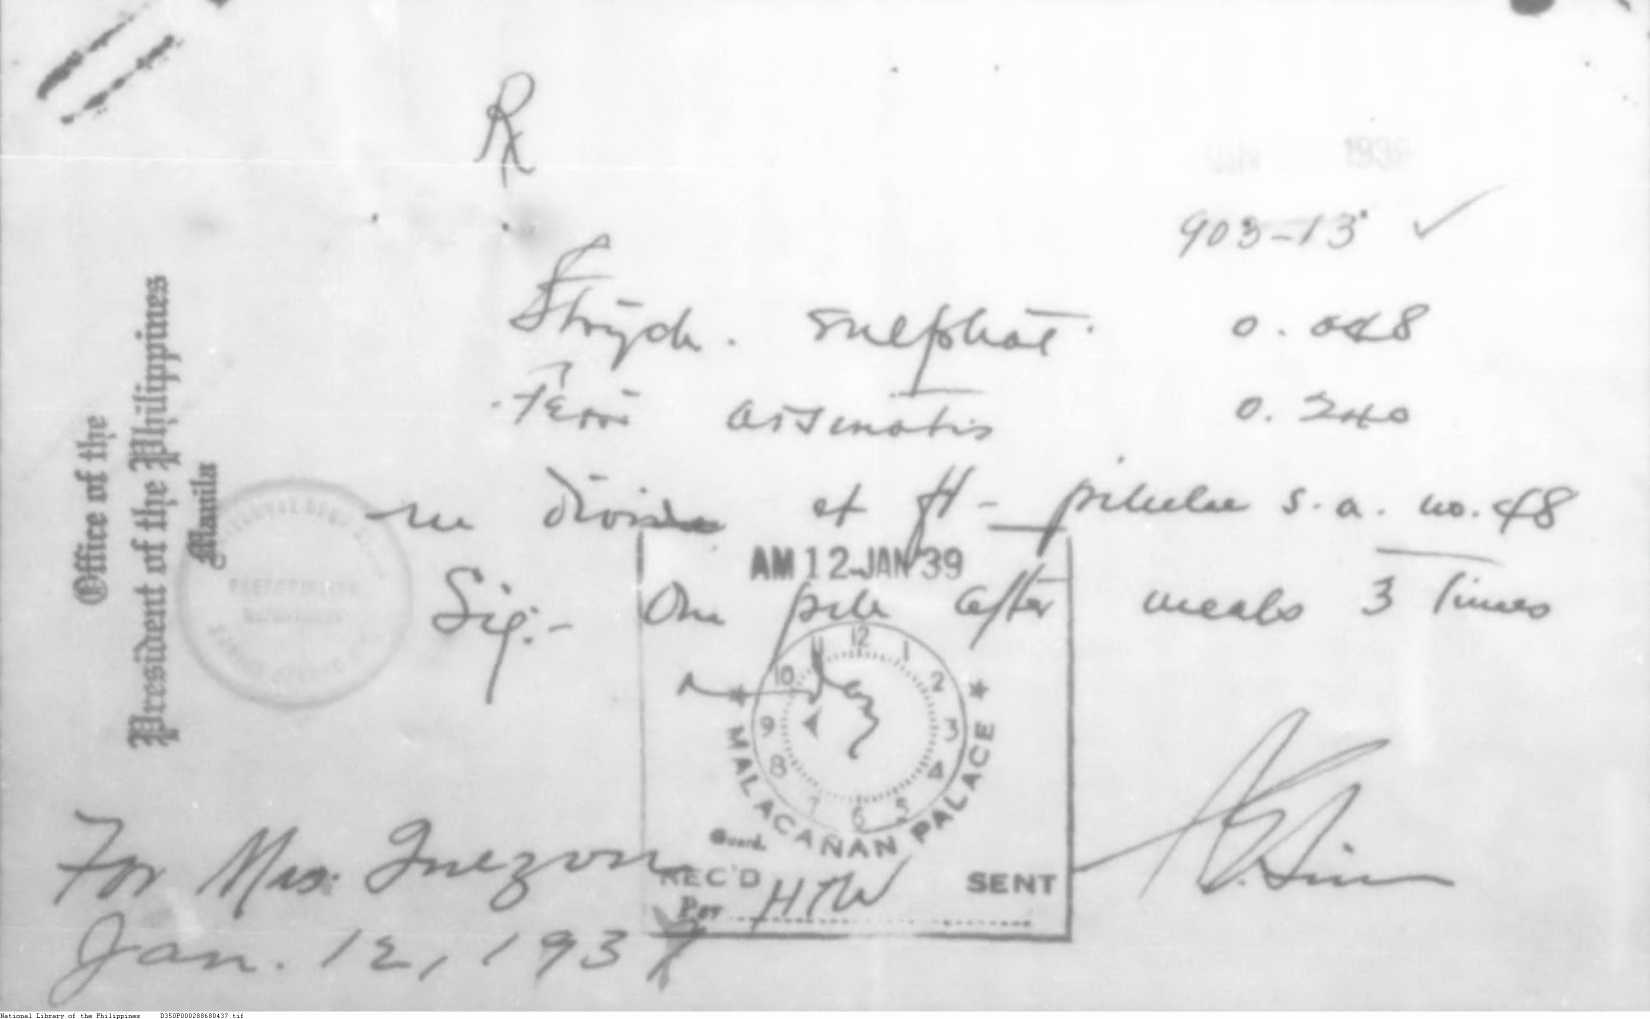 Rx
1939
903-13 ✓
Strych. Sulphat. 0.048
Ferri arsenatis 0.240
et ft - pilulae s.a. no. 48
Sig:- One pill after meals 3 times
a day
Office of the
President of the Philippines
Manila
AM 12 JAN 39
12 1 2 3 4 5 6 7 8 9 10 11
MALACAÑAN PALACE
Guard.
REC'D SENT
Per HTW
For Mrs. Quezon
Jan. 12, 193
National Library of the Philippines D350P000288680437.tif